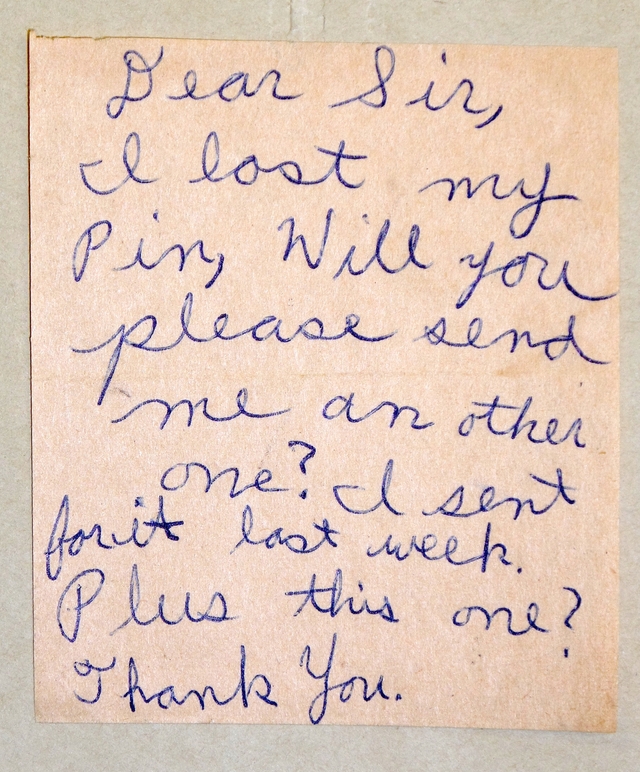 Dear Sir,
I lost my
Pin, Will you
please send
me an other
one? I sent
for it last week.
Plus this one?
Thank You.